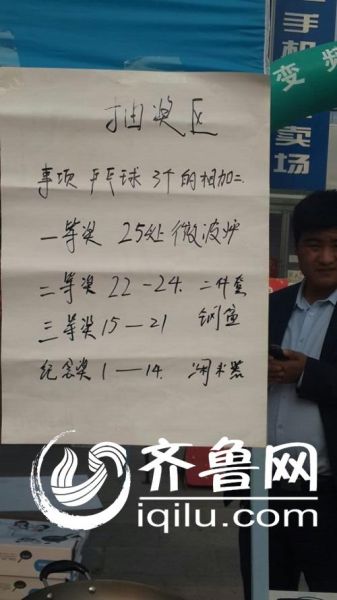 手机卖场
变频
抽奖区
事项 乒乓球 3个的相加二
一等奖 25处 微波炉
二等奖 22-24. 二件套
三等奖 15—21 钢盆
纪念奖 1—14.
齐鲁网
iqilu.com